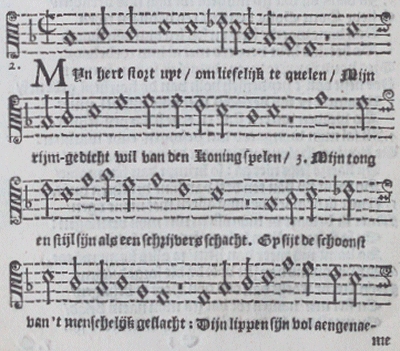 2.
MYn hert stort uyt / om lieselijk te quelen / Mijn
rijm-gedicht wil van den Koning spelen / 3. Mijn tong
en stijl sijn als een schrijvers schacht. Gy sijt de schoonst
van 't menschelijk geslacht : Dijn lippen sijn vol aengenae-
me